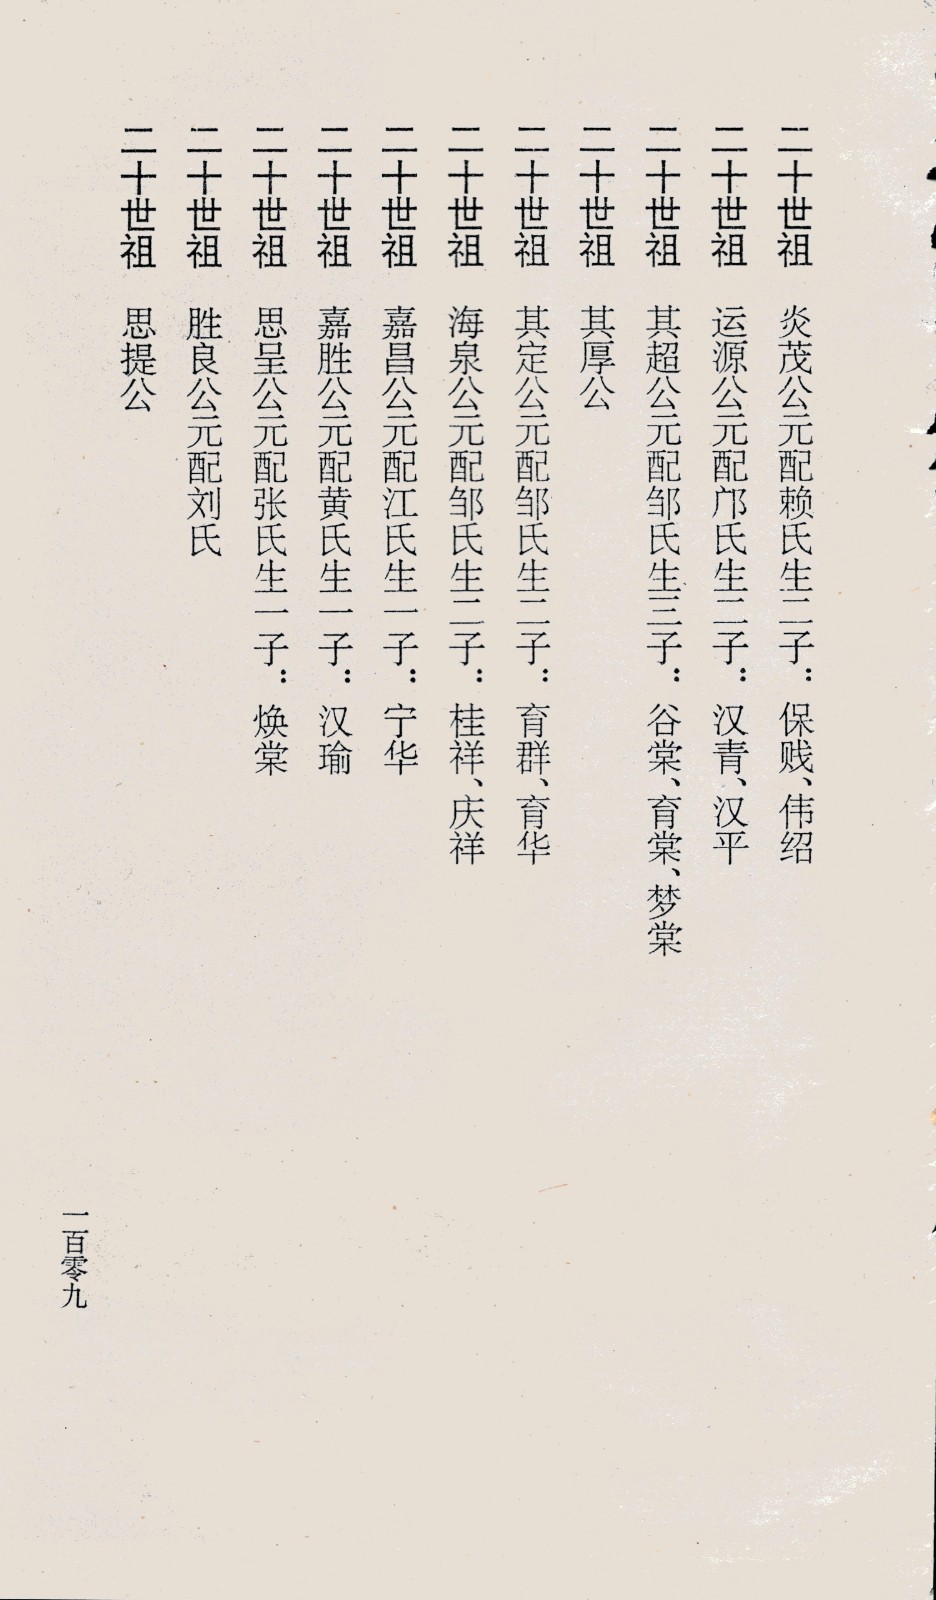 二十世祖 炎茂公元配赖氏生二子：保贱、伟绍
二十世祖 运源公元配邝氏生二子：汉青、汉平
二十世祖 其超公元配邹氏生三子：谷棠、育棠、梦棠
二十世祖 其厚公
二十世祖 其定公元配邹氏生二子：育群、育华
二十世祖 海泉公元配邹氏生二子：桂祥、庆祥
二十世祖 嘉昌公元配江氏生一子：宁华
二十世祖 嘉胜公元配黄氏生一子：汉瑜
二十世祖 思呈公元配张氏生一子：焕棠
二十世祖 胜良公元配刘氏
二十世祖 思提公
一百零九